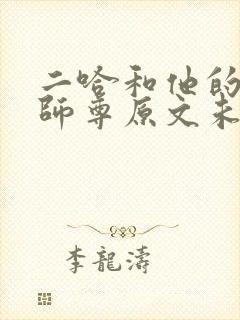 二哈和他的
師尊原文未
李龍濤